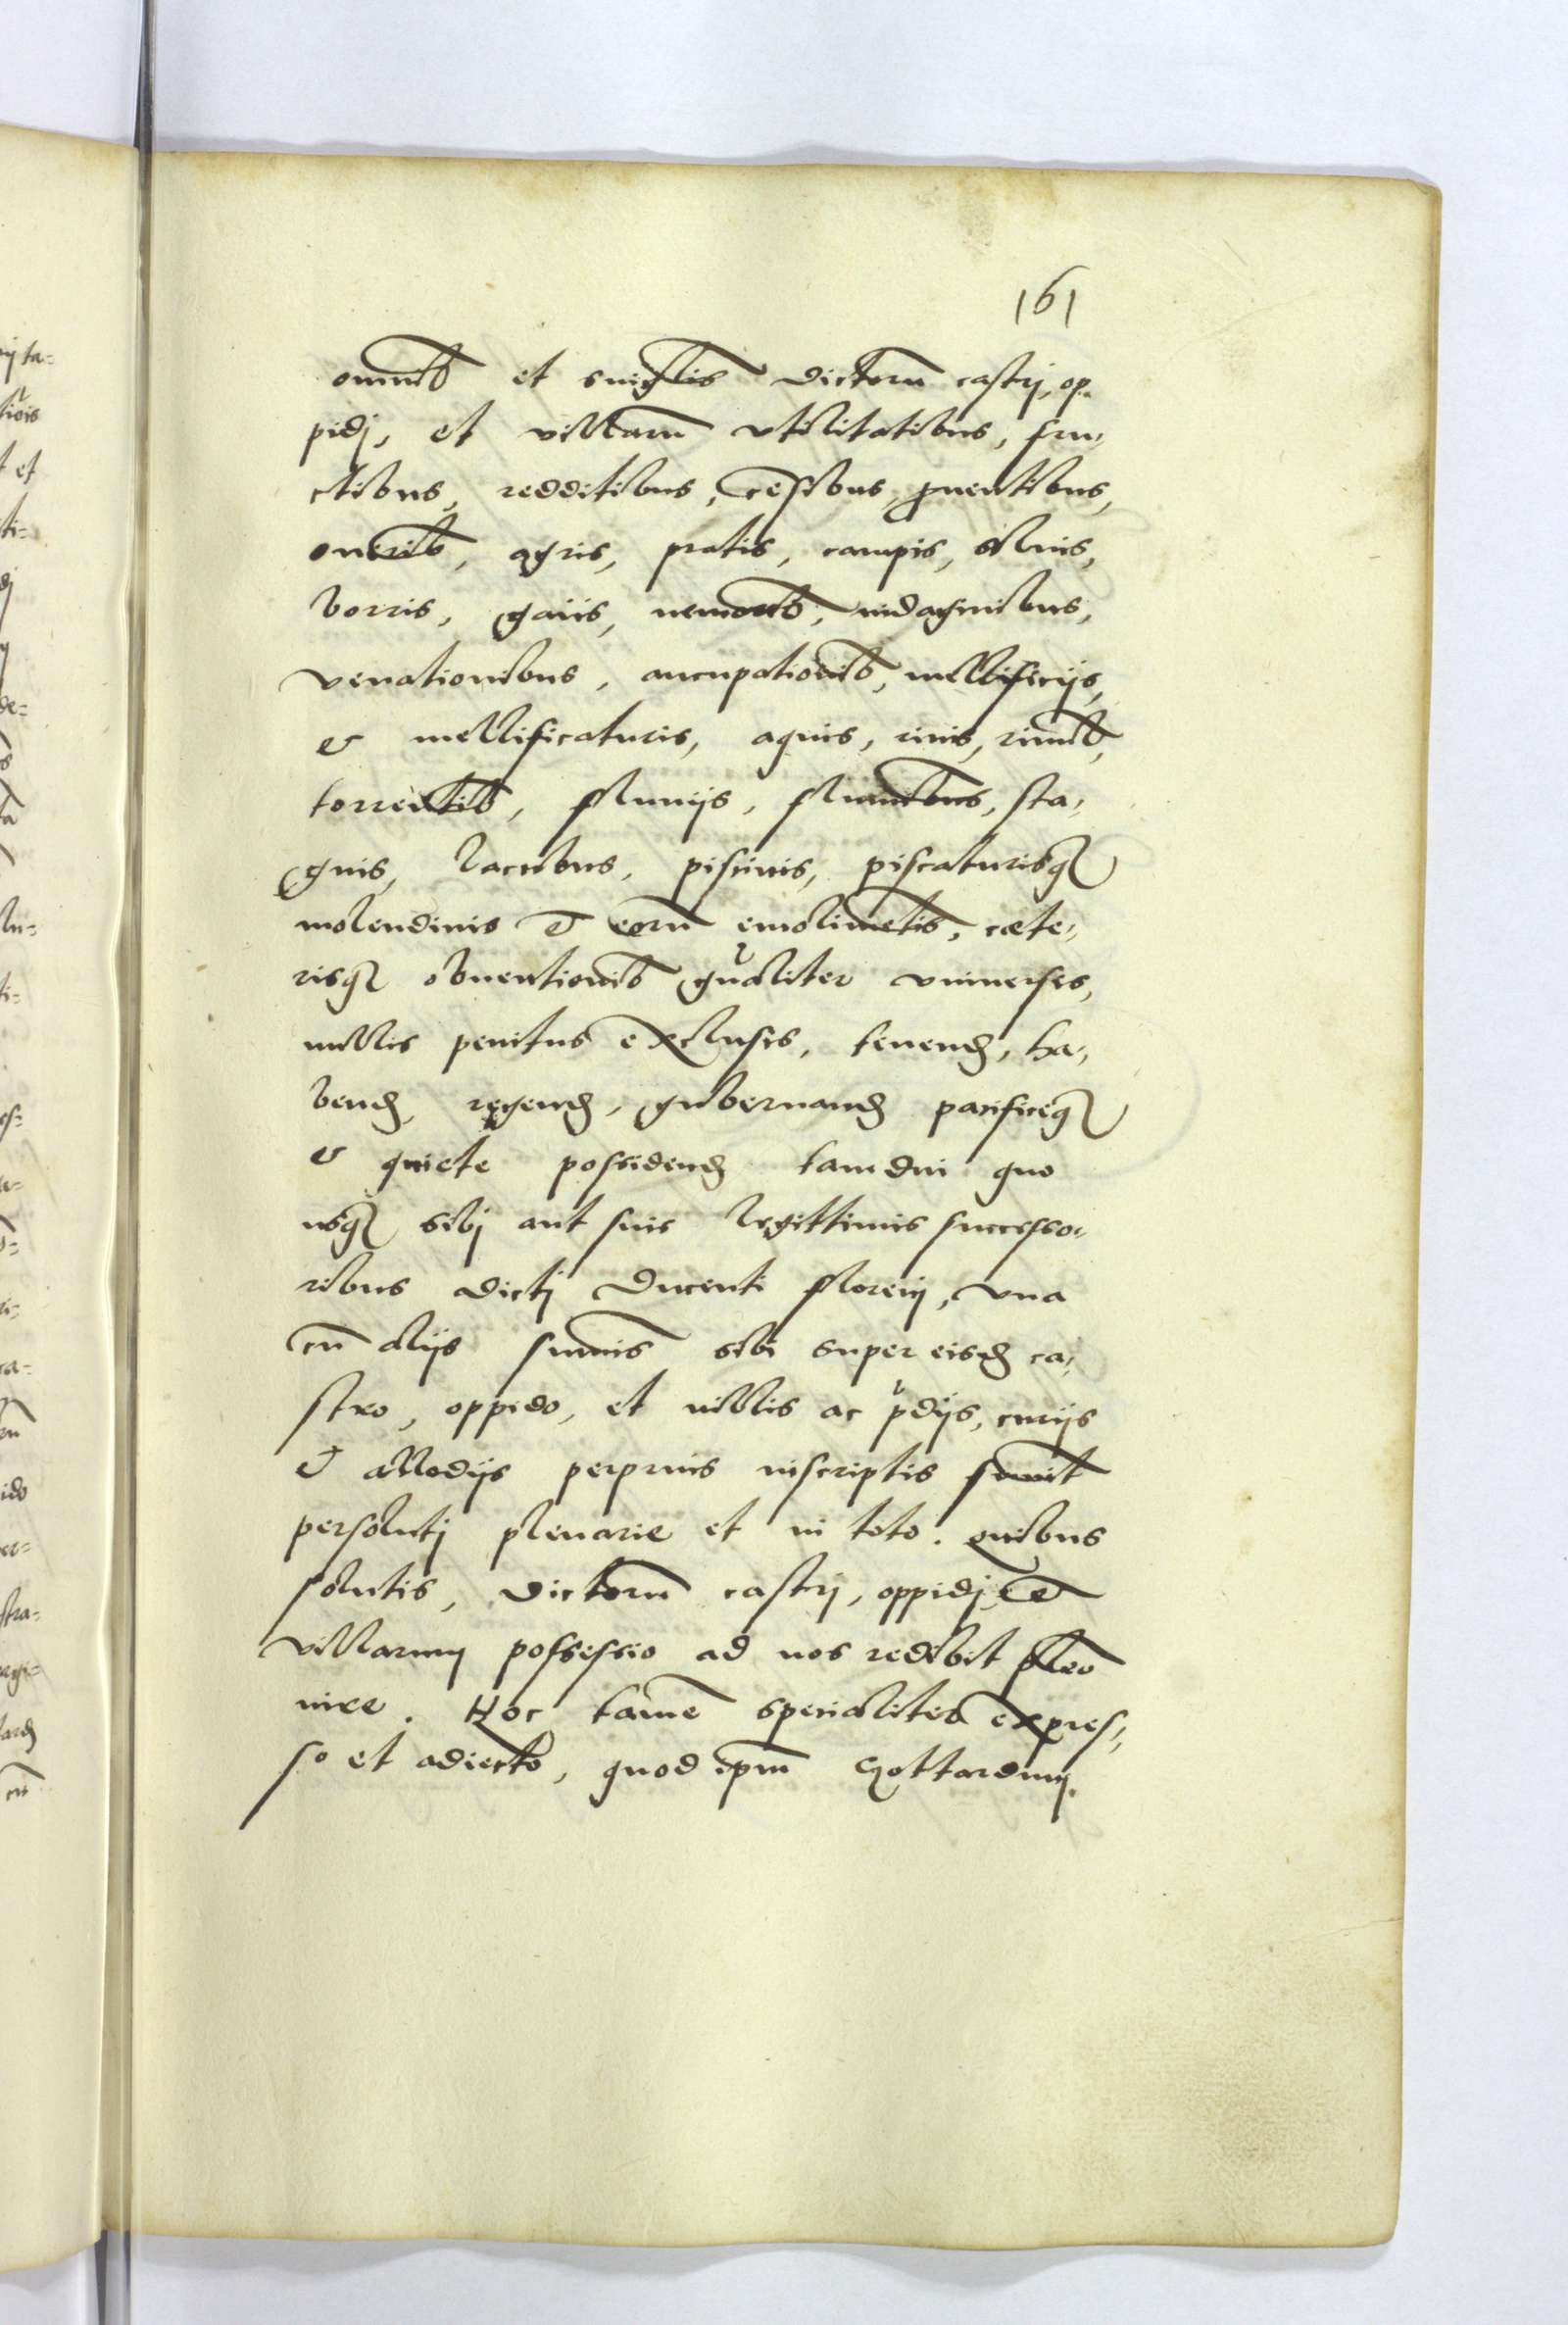 161
omnib et singlis dictorũ castrj, op-
pidj, et villarũ vtilitatibus, fru-
ctibus, redditibus, cẽsibus, ꝓuentibus,
onerib, agris, pratis, campis, siluis,
borris, gaiis, nemorib, indaginibus,
venationibus, aucupationib, mellificijs,
& mellificaturis, aquis, riuis, riuulis,
torrentib, fluuijs, fluminibus, sta-
gnis, lacubus, piscinis, piscaturisq
molendinis et eorũ emolimẽtis, caete-
risq obuentionib qualiter vniuersis,
nullis penitus exclusis, tenend, ha-
bend, regend, gubernand pacificeq
& quiete possidend tamdiu quo
usq sibj aut suis legittimis successo-
ribus dictj ducenti florenj, vna
cũ alijs summis sibi super eisd ca-
stro, oppido, et villis ac pdijs, curijs
et allodijs perprius inscriptis fuerint
persolutj plenarie et in toto. quibus
solutis, dictorũ castrj, oppidj, et
villarum possessio ad nos redibit pleno
iure. Hoc tamẽ specialiter expres-
so et adiecto, quod ipm Gottardum